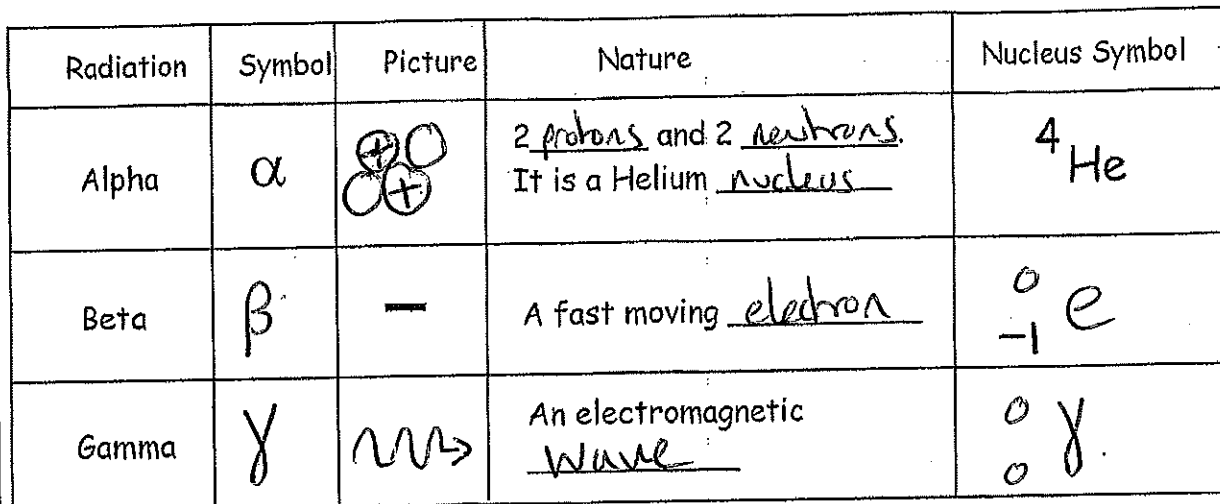 Radiation Symbol Picture Nature Nucleus Symbol
Alpha α + + 2 protons and 2 neutrons. ⁴He
It is a Helium nucleus
Beta β − A fast moving electron ⁰₋₁e
Gamma γ An electromagnetic ⁰₀γ.
wave